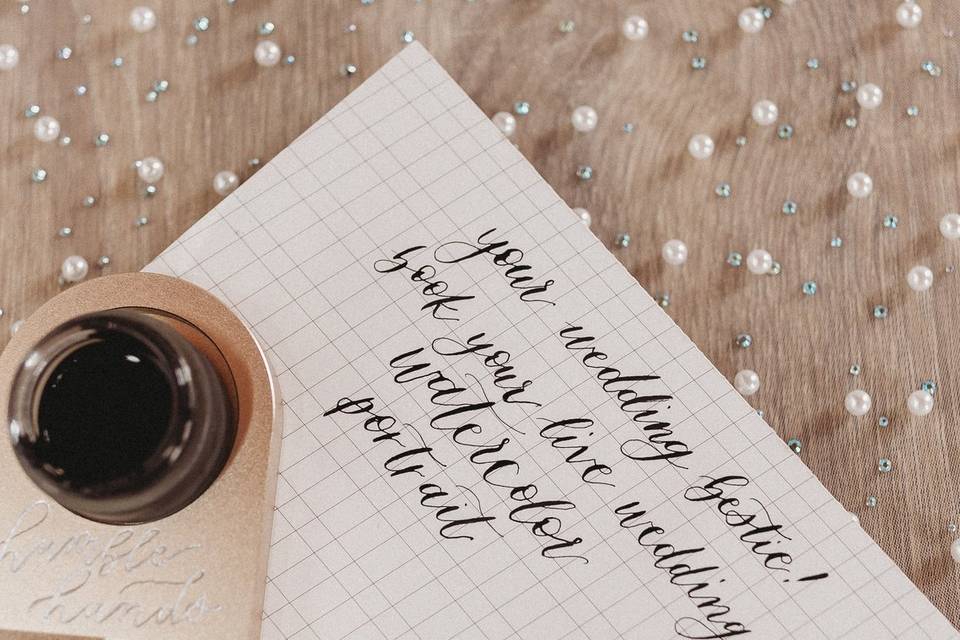 your wedding bestie!
book your live wedding
watercolor
portrait
humble
hands